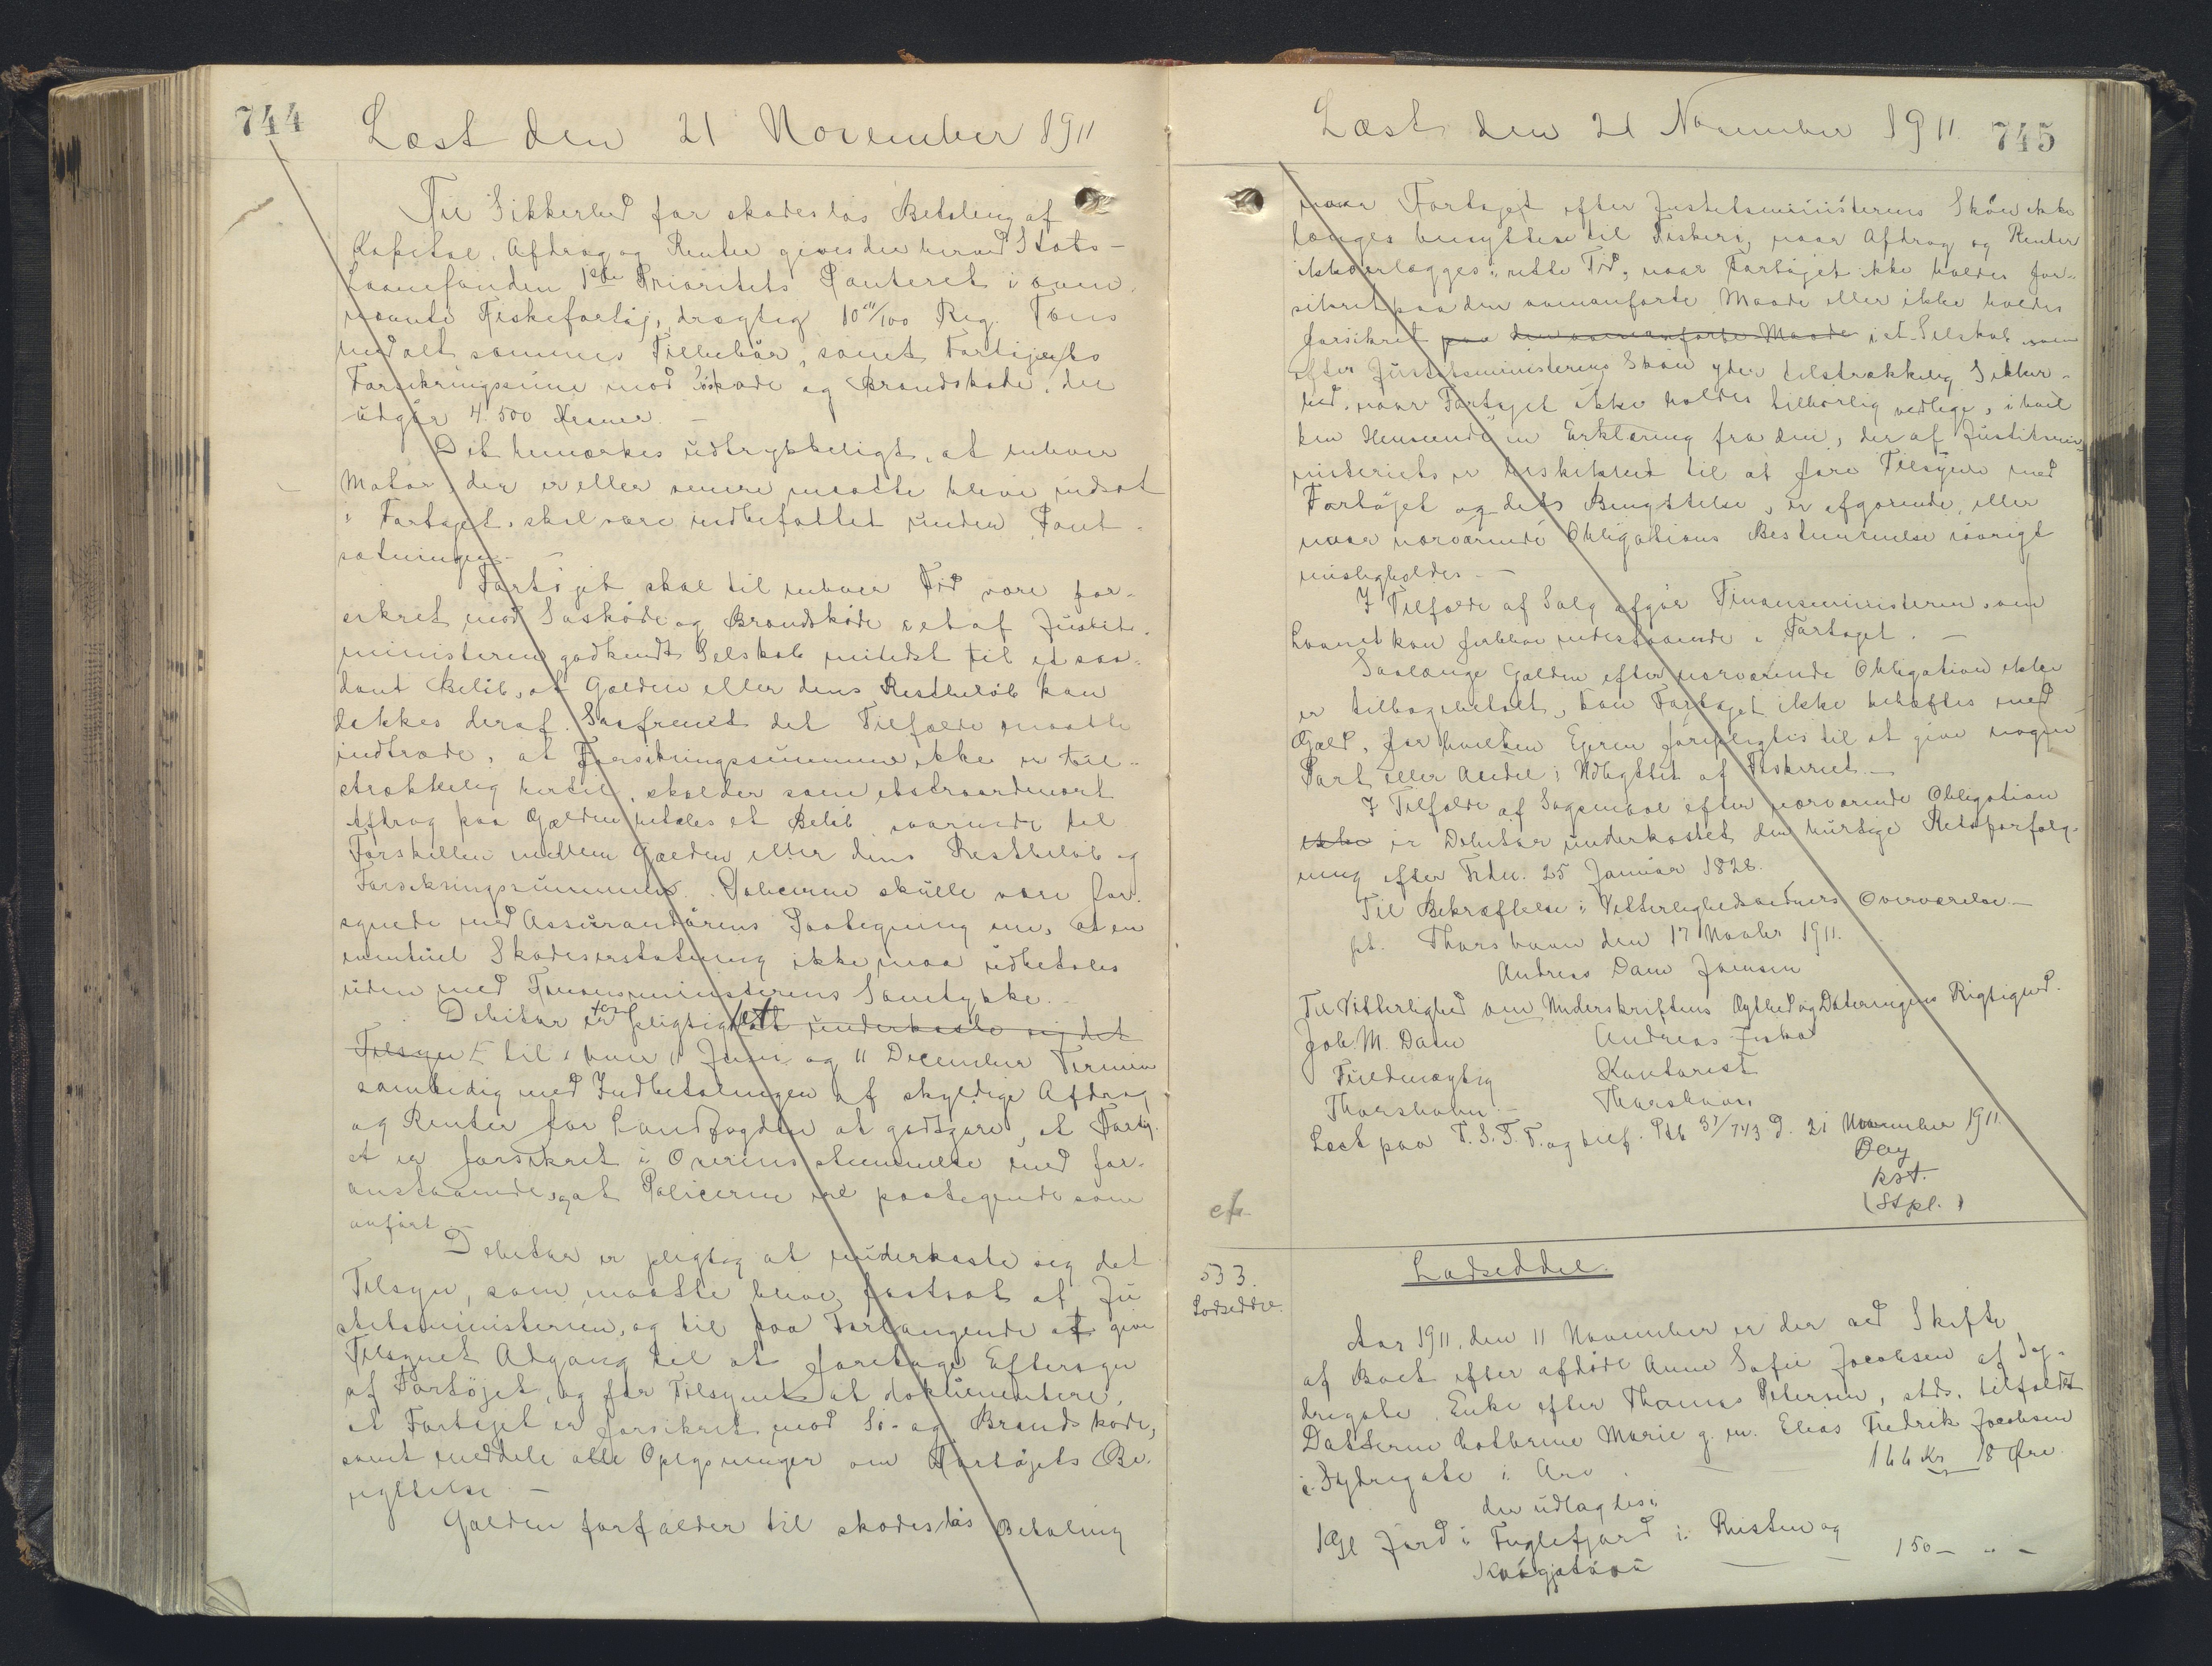 744
Læst den 21 November 1911
Til Sikkerhed for skadesløs Betaling af
Kapital, Afdrag og Renter gives der herved Stats-
Laanefonden 1ste Prioritets Panteret i oven-
nævnte Fiskefartøj, drægtig 10 /100 Reg. Tons
med alt sammes Tilbehør, samt Fartøjets
Forsikringssum mod Søskade og Brandskade, der
udgør 4500 Kroner. -
Det bemærkes udtrykkeligt, at enhver
Motor, der er eller senere maatte blive indsat
i Fartøjet, skal være indbefattet under Pant-
sætningen. -
Fartøjet skal til enhver Tid være for-
sikret mod Søskade og Brandskade i et af Justits-
ministeren godkendt Selskab mindst til et saa-
dant Beløb, at Gælden eller dens Restbeløb kan
dækkes deraf. Saafremt det Tilfælde maatte
indtræde, at Forsikringssummen ikke er til-
strækkelig hertil, skal der som extraordinært
Afdrag paa Gælden betales et Beløb svarende til
Forskellen mellem Gælden eller dens Restbeløb og
Forsikringssummen. Policerne skulle være for-
synede med Assurandørens Paategning om, at en
eventuel Skadeserstatning ikke maa udbetales
uden med Finansministerens Samtykke. -
Debitor er pligtig at underkaste sig det
Tilsyn til i hver 11 Juni og 11 December Termin
samtidig med Indbetalingen af skyldige Afdrag
og Renter for Landfogden at godtgøre, at Fartøj-
et er forsikret i Overensstemmelse med for-
anstaaende, og at Policerne ere paategnede som
anført. -
Debitor er pligtig at underkaste sig det
Tilsyn, som maatte blive fastsat af Ju-
stitsministeren, og til paa Forlangende at give
Tilsynet Adgang til at foretage Eftersyn
af Fartøjet, og for Tilsynet at dokumentere,
at Fartøjet er forsikret mod Sø- og Brandskade,
samt meddele alle Oplysninger om Fartøjets Be-
nyttelse. -
Gælden forfalder til skadesløs Betaling
Læst den 21 November 1911.
745
naar Fartøjet efter Justitsministerens Skøn ikke
længer benyttes til Fiskeri, naar Afdrag og Renter
ikke erlægges i rette Tid, naar Fartøjet ikke holdes for-
sikret paa den ovenanførte Maade eller ikke holdes
forsikret paa den ovenanførte Maade i et Selskab, som
efter Justitsministerens Skøn yder tilstrækkelig Sikker-
hed, naar Fartøjet ikke holdes tilbørlig vedlige, i hvil
ken Henseende en Erklæring fra den, der af Justitsmi-
nisteriets er beskikket til at føre Tilsyn med
Fartøjet og dets Benyttelse, er afgørende, eller
naar nærværende Obligations Bestemmelse iøvrigt
misligholdes. -
I Tilfælde af Salg afgør Finansministeren, om
Laanet kan forblive indestaaende i Fartøjet. -
Saalænge Gælden efter nærværende Obligation ikke
er tilbagebetalt, kan Fartøjet ikke behæftes med
Gæld, for hvilken Ejeren forpligtes til at give nogen
Part eller Andel i Udbyttet af Fiskeriet. -
I Tilfælde af Søgsmaal efter nærværende Obligation
ikke er Debitor underkastet den hurtige Retsforfølg-
ning efter Frdn. 25 Januar 1828.
Til Bekræftelse i Vitterlighedsvidners Overværelse. -
pt. Thorshavn den 17 Novbr 1911.
Andreas Dam Joensen
Til Vitterlighed om Underskriftens Ægthed og Dateringens Rigtighed.
Joh. M. Dam
Andreas Ziska
Fuldmægtig
Kontorist
Thorshavn. -
Thorshavn
Læst paa T.S.T.T. og bief. Ptb 37/743 D. 21 November 1911.
Bay
kst.
(Stpl.)
533.
Lodseddel.
Lodseddel.
Aar 1911, den 11 November er der ved Skifte
af Boet efter afdøde Anne Sofie Jacobsen af Sy-
dregøte, Enke efter Thomas Petersen, stds. tilfaldt
Datteren Cathrine Marie g. m. Elias Fredrik Jacobsen
i Sydregøte i Arv. 166 Kr. 18 Øre
der udlagdes:
1 Gl Jord i Fuglefjord i Risten og
150 - " -